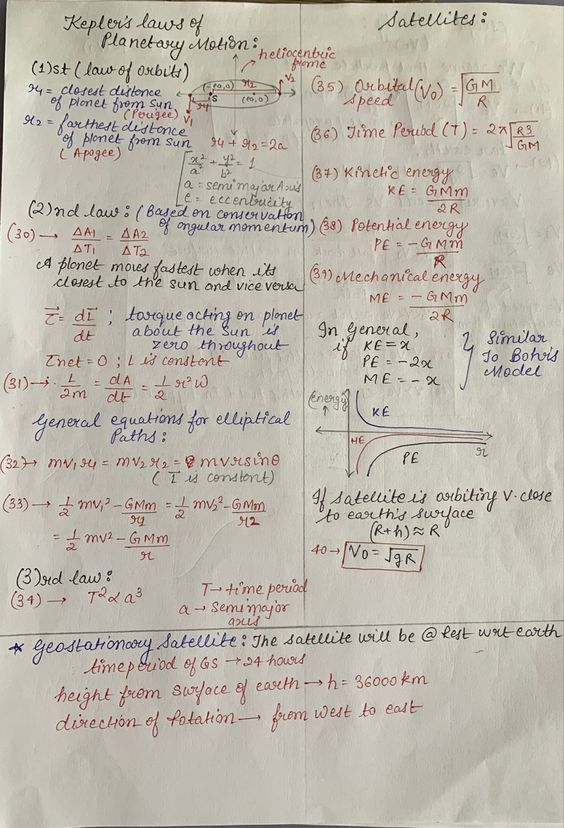 Kepler's laws of
Planetary Motion:
heliocentric
frame
(1)st (law of orbits)
r1 = closest distance
of planet from sun
(Perigee)
r2 = farthest distance
of planet from sun
(Apogee)
(-ae,0)
r2
V2
S
r1
V1
(0,0)
r1 + r2 = 2a
x²/a² + y²/b² = 1
a = semi major Axis
e = eccentricity
(2)nd law: (Based on conservation
of angular momentum)
(30) → ΔA1/ΔT1 = ΔA2/ΔT2
A planet moves fastest when its
closest to the sun and vice versa
τ⃗ = dL⃗/dt ; torque acting on planet
about the sun is
zero throughout
τnet = 0 ; L is constant
(31) → L/2m = dA/dt = 1/2 r²ω
General equations for elliptical
Paths:
(32) → mv1r1 = mv2r2 = mvrsinθ
(L⃗ is constant)
(33) → 1/2 mv1² - GMm/r1 = 1/2 mv2² - GMm/r2
= 1/2 mv² - GMm/r
(3)rd law:
(34) → T² ∝ a³
T → time period
a → semi major
axis
Satellites:
(35) Orbital speed (V0) = √(GM/R)
(36) Time Period (T) = 2π√(R3/GM)
(37) Kinetic energy
KE = GMm/2R
(38) Potential energy
PE = -GMm/R
(39) Mechanical energy
ME = -GMm/2R
In General,
if KE = x
PE = -2x
ME = -x
Similar
To Bohr's
Model
Energy
KE
ME
PE
r
If satellite is orbiting v.close
to earth's surface
(R+h) ≈ R
40 → V0 = √gR
* Geostationary Satellite: The satellite will be @ Rest wrt earth
timeperiod of GS → 24 hours
height from surface of earth → h = 36000 km
direction of Rotation → from west to east